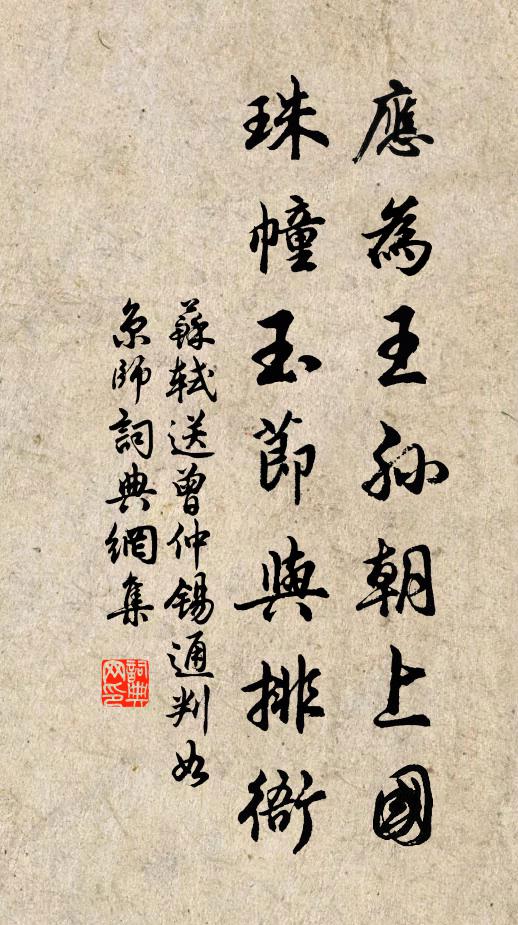 應為王孫朝上國
珠幢玉節與排衙
蘇軾送曾仲錫通判如
京師詞典網集
詞典
网印